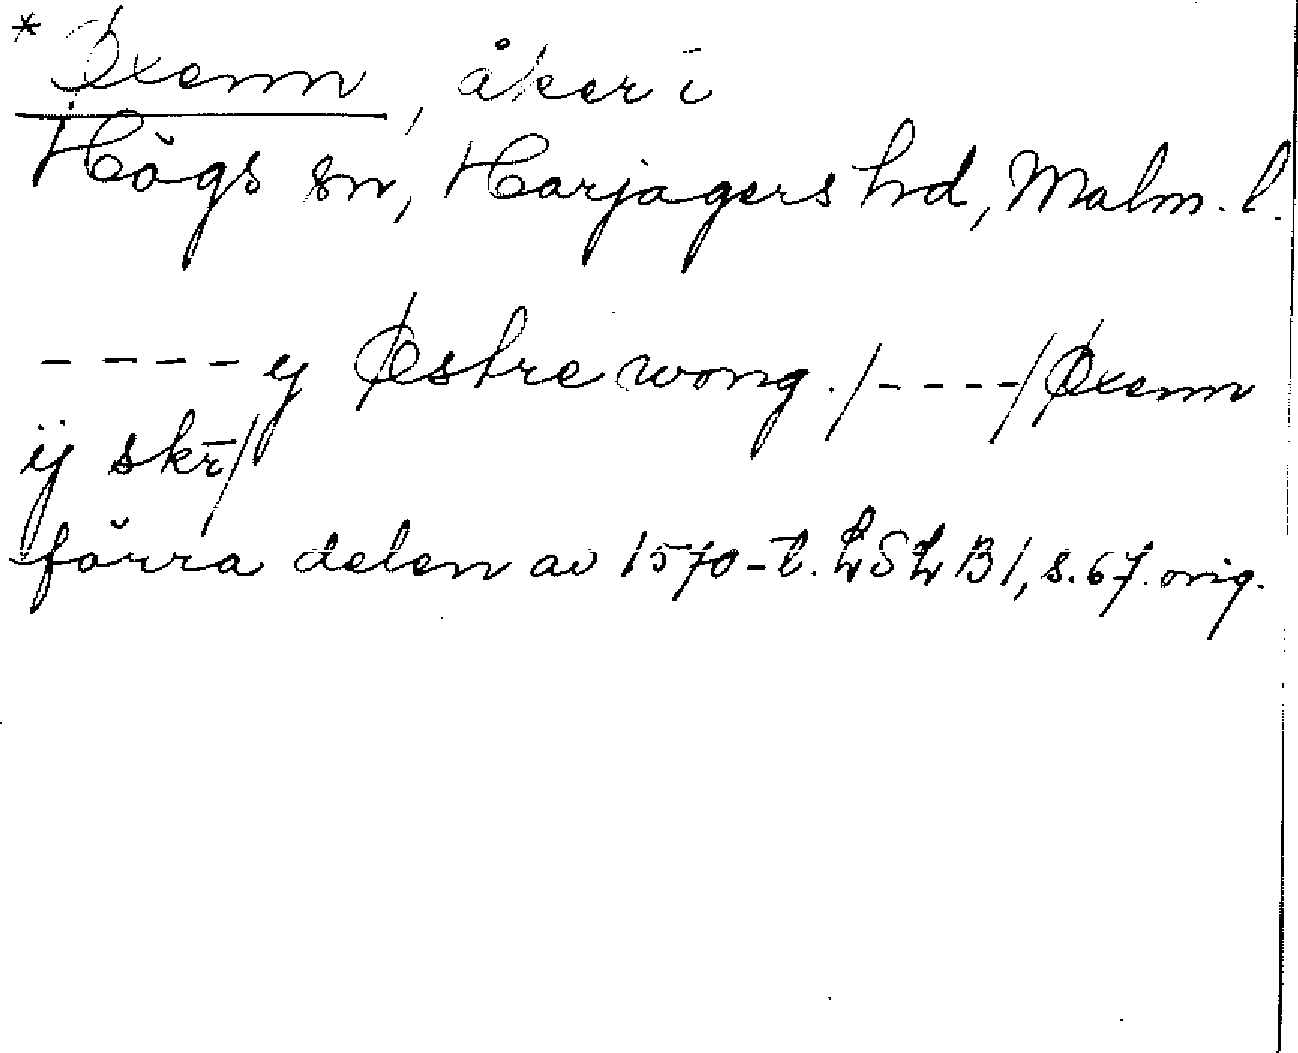 * Øxenn, åker i
Högs sn, Harjagers hd, Malm. l.
---- y Østre wong ./----/Øxenn
ÿ skr̄/
förra delen av 1570-t. LSLB1, s.67. orig.